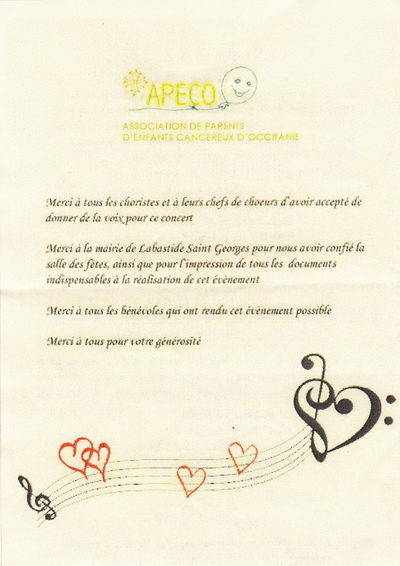 APECO
ASSOCIATION DE PARENTS
D'ENFANTS CANCEREUX D'OCCITANIE
Merci à tous les choristes et à leurs chefs de choeurs d'avoir accepté de
donner de la voix pour ce concert
Merci à la mairie de Labastide Saint Georges pour nous avoir confié la
salle des fêtes, ainsi que pour l'impression de tous les documents
indispensables à la réalisation de cet évènement
Merci à tous les bénévoles qui ont rendu cet évènement possible
Merci à tous pour votre générosité